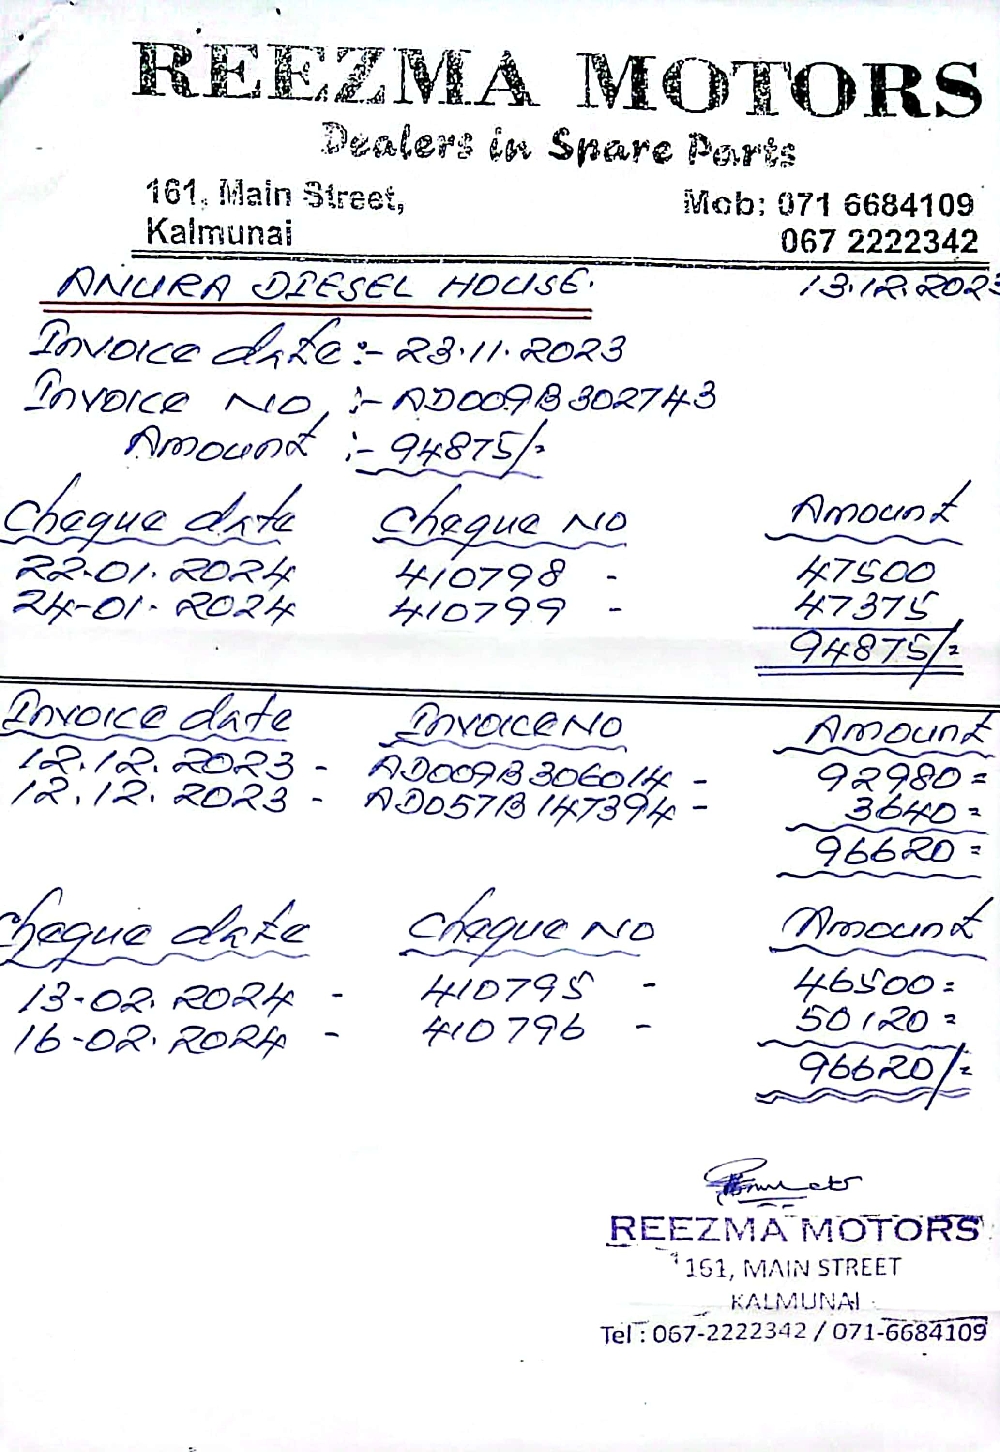 REEZMA MOTORS
Dealers in Spare Parts
161, Main Street, Mob: 071 6684109
Kalmunai 067 2222342
ANURA DIESEL HOUSE. 13.12.2023
Invoice date :- 23.11.2023
Invoice NO :- AD009B302743
Amount :- 94875/=
Cheque date Cheque NO Amount
22-01.2024 410798 - 47500
24-01.2024 410799 - 47375
94875/=
Invoice date Invoice NO Amount
12.12.2023 - AD009B306014 - 92980=
12.12.2023 - AD057B147394 - 3640=
96620=
Cheque date Cheque NO Amount
13-02.2024 - 410795 - 46500=
16-02.2024 - 410796 - 50120=
96620/=
REEZMA MOTORS
161, MAIN STREET
KALMUNAI
Tel : 067-2222342 / 071-6684109